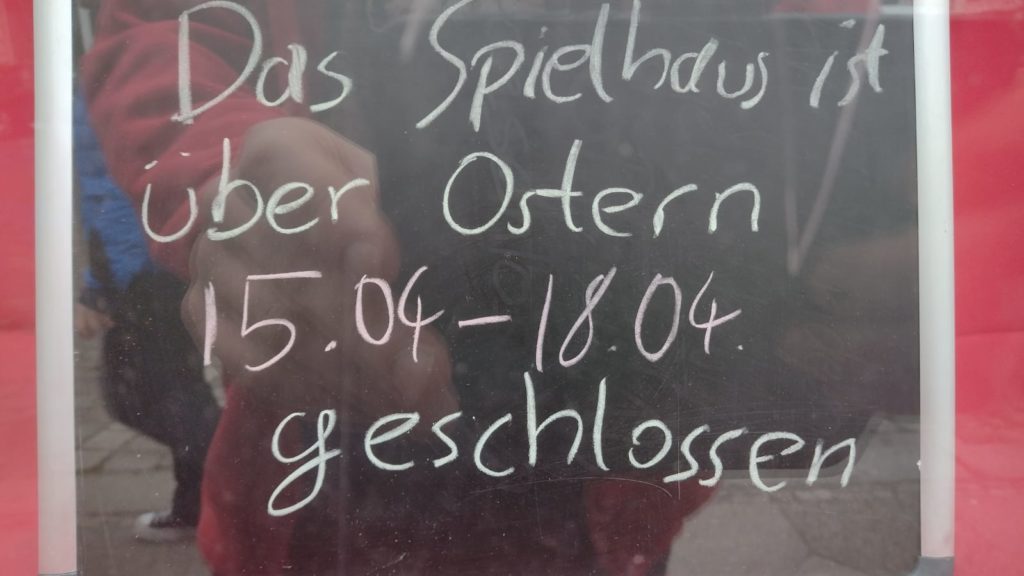 Das Spielhaus ist
über Ostern
15.04-18.04.
geschlossen